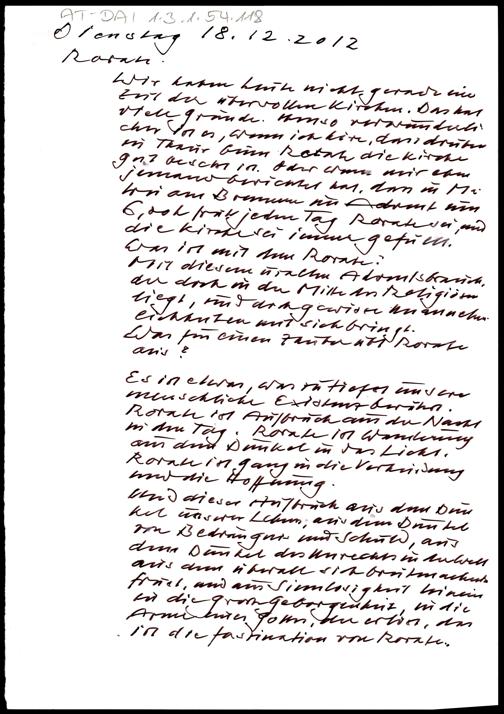 AT-DAI 1.3.1.54.118
Dienstag 18.12.2012
Rorate.
Wir haben heute nicht gerade eine
Zeit der übervollen Kirchen. Das hat
viele Gründe. Umso verwunderli
cher ist es, wenn ich höre, dass drüben
in Thaur beim Rorate die Kirche
gut besetzt ist. Oder wenn mir eben
jemand berichtet hat, dass in Ma
trei am Brenner im Advent um
6,00h früh jeden Tag Rorate sei, und
die Kirche sei immer gefüllt.
Was ist mit dem Rorate?
Mit diesem uralten Adventsbrauch,
der doch in der Mitte des Religiösen
liegt, und doch gewisse Unannehm
lichkeiten mit sich bringt.
Was für einen Zauber übt Rorate
aus?
Es ist etwas, was zutiefst unsere
menschliche Existenz berührt.
Rorate ist Aufbruch aus der Nacht
in den Tag. Rorate ist Wanderung
aus dem Dunkel in das Licht.
Rorate ist Gang in die Verheissung
und die Hoffnung.
Und dieser Aufbruch aus dem Dun
kel unseres Lebens, aus dem Dunkel
von Bedrängnis und Schuld, aus
dem Dunkel des Unrechts in der Welt
aus dem überall sich breitmachenden
und aus Sinnlosigkeit hinein
in die grosse Geborgenheit, in die
Arme eines Gottes, der erlöst, das
ist die Faszination von Rorate.